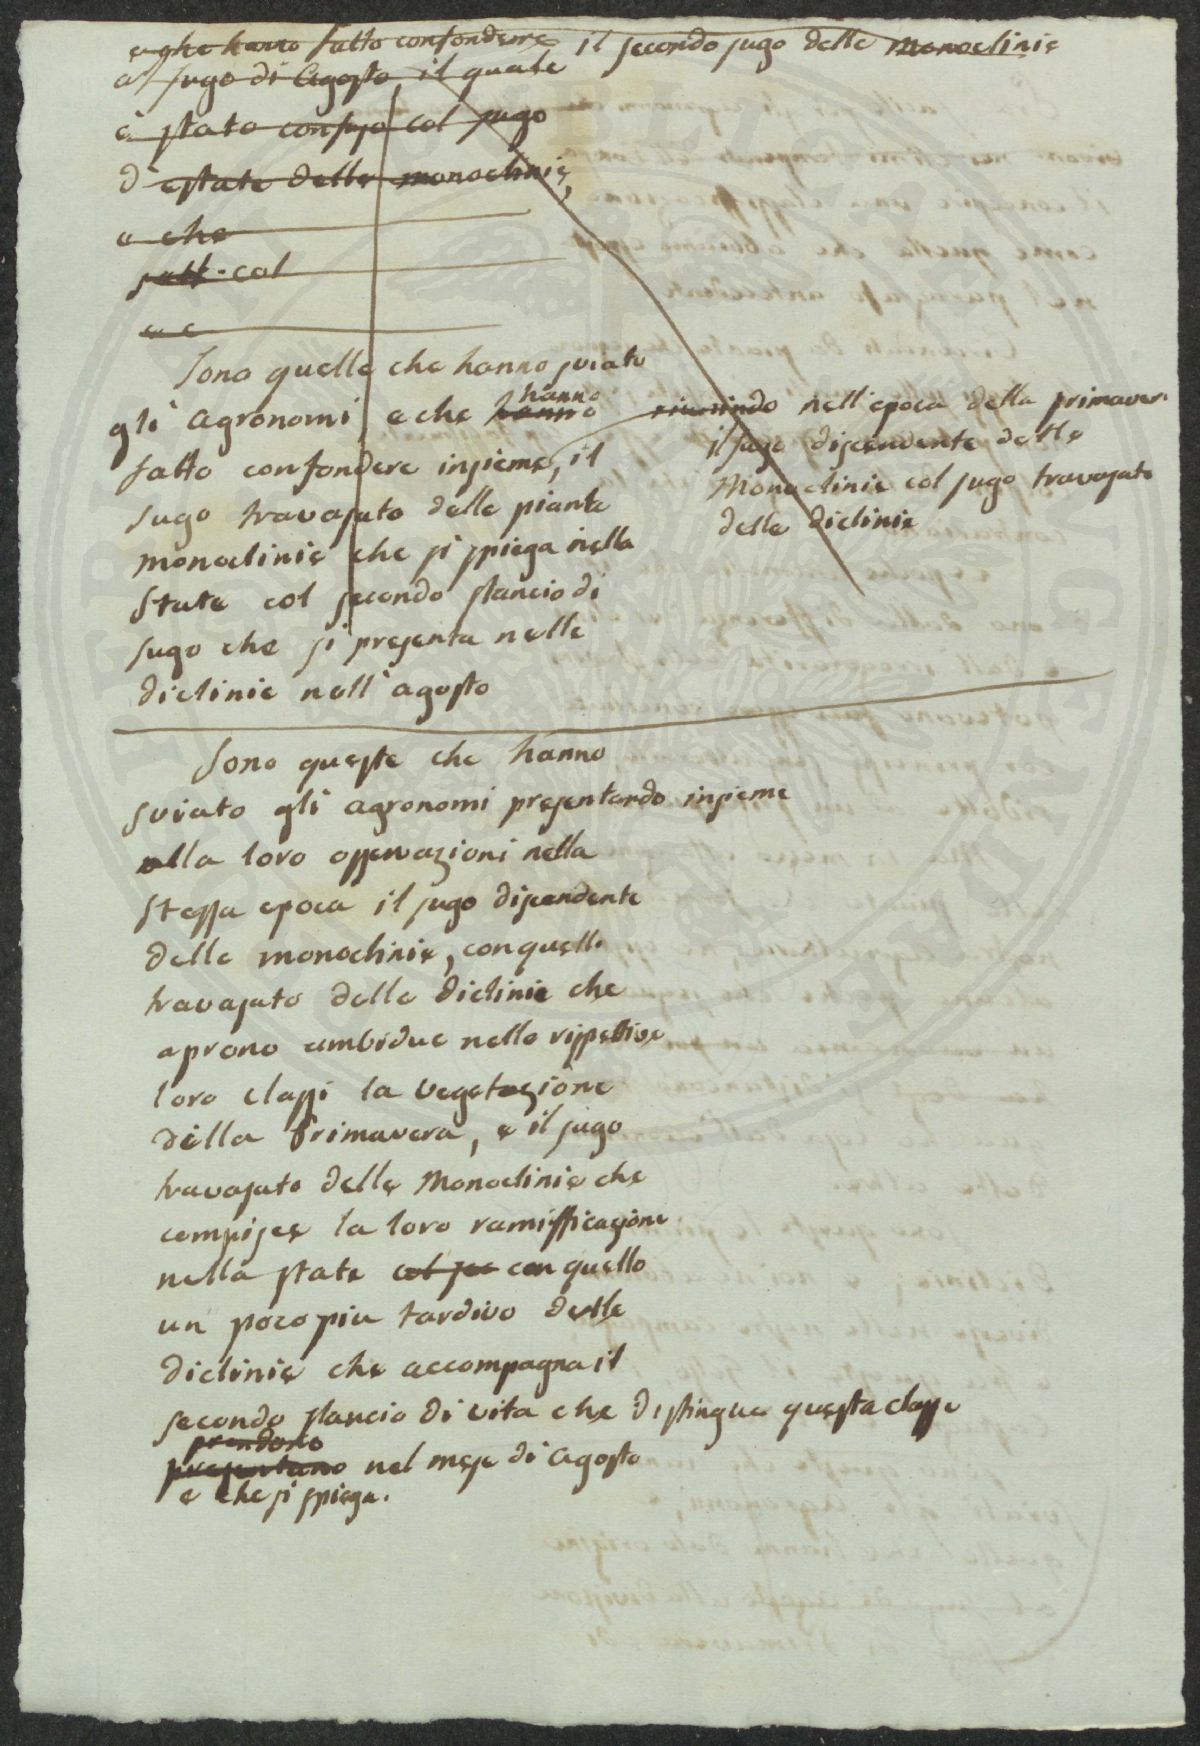 e che hanno fatto confondere il secondo sugo delle monoclinie
al sugo di Agosto, il quale
è stato confuso col sugo
d'estate delle monoclinie,
e che
fatt. col
e e
Sono quelle che hanno sviato
gli agronomi, e che hanno
hanno
fatto confondere insieme, il
sugo travasato delle piante
monoclinie che si spiega nella
state col secondo slancio di
sugo che si presenta nelle
diclinie nell'agosto
riunindo nell'epoca della primaver
il sugo discendente delle
Monoclinie col sugo travasato
delle diclinie
Sono queste che hanno
sviato gli agronomi presentando insieme
alla loro osservazioni nella
stessa epoca il sugo discendente
delle monoclinie, con quello
travasato delle diclinie che
aprono ambidue nelle rispettive
loro classi la vegetazione
della Primavera, e il sugo
travasato delle Monoclinie che
compisce la loro ramifficazione
nella state col sec con quello
un poco piu tardivo delle
diclinie che accompagna il
secondo slancio di vita che distingue questa classe
prendono
presentano nel mese di Agosto
e che si spiega.